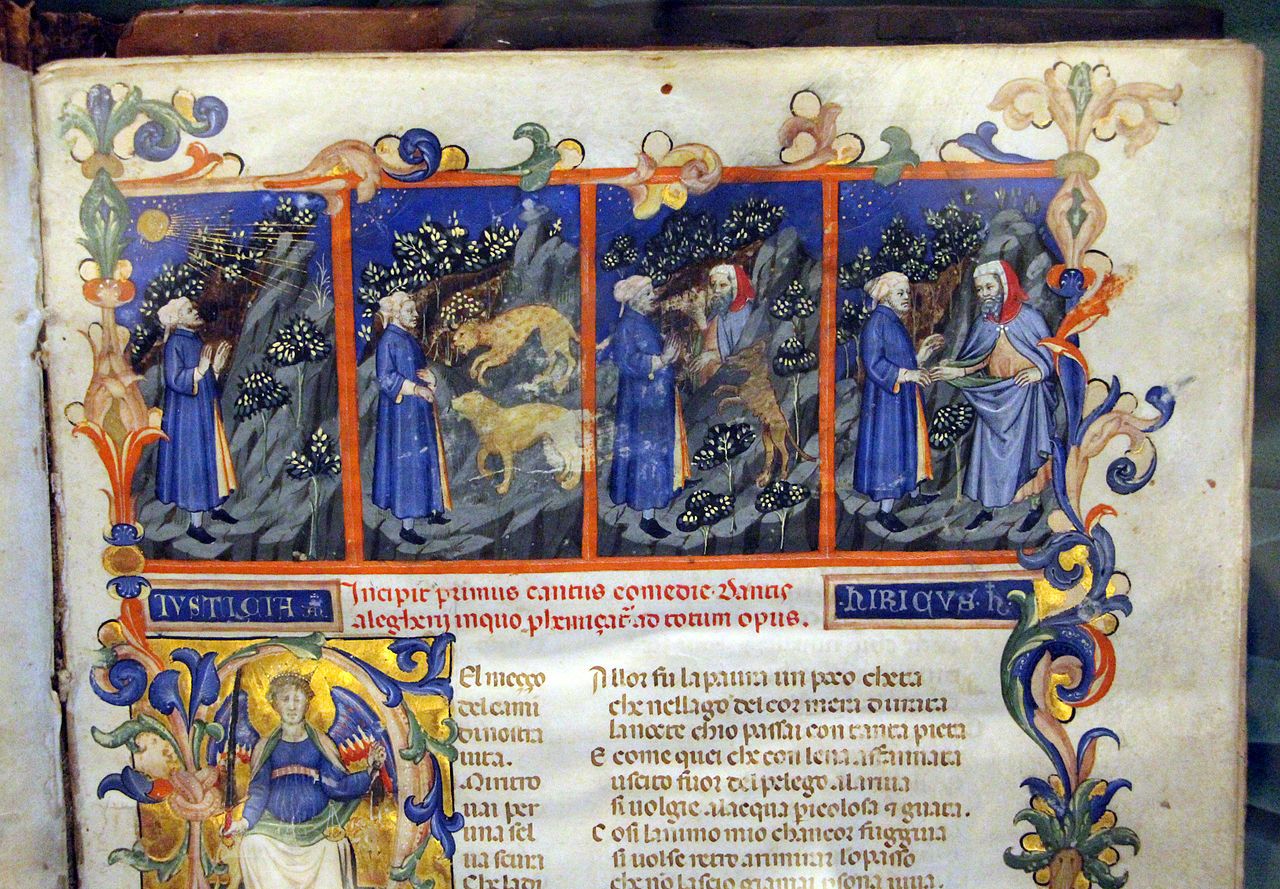 IVSTICIA
Incipit primus cantus comedie Dantis
alegherij in quo
ad totum opus.
El meço
del cami
di nostra
uita.
Mi ritro
uai per
una sel
ua scura
Che la di
Allor fu la paura un poco cheta
che nel lago del cor mera durata
la nocte chio passai con tanta pieta
E come quei che con lena affannata
uscito fuor del pelego ala riua
si uolgie alacqua piculosa & guata.
Cosi lanimo mio chancor fuggiua
si uolse retro a rimirar lo passo
che no lascio giamai psona uiua.